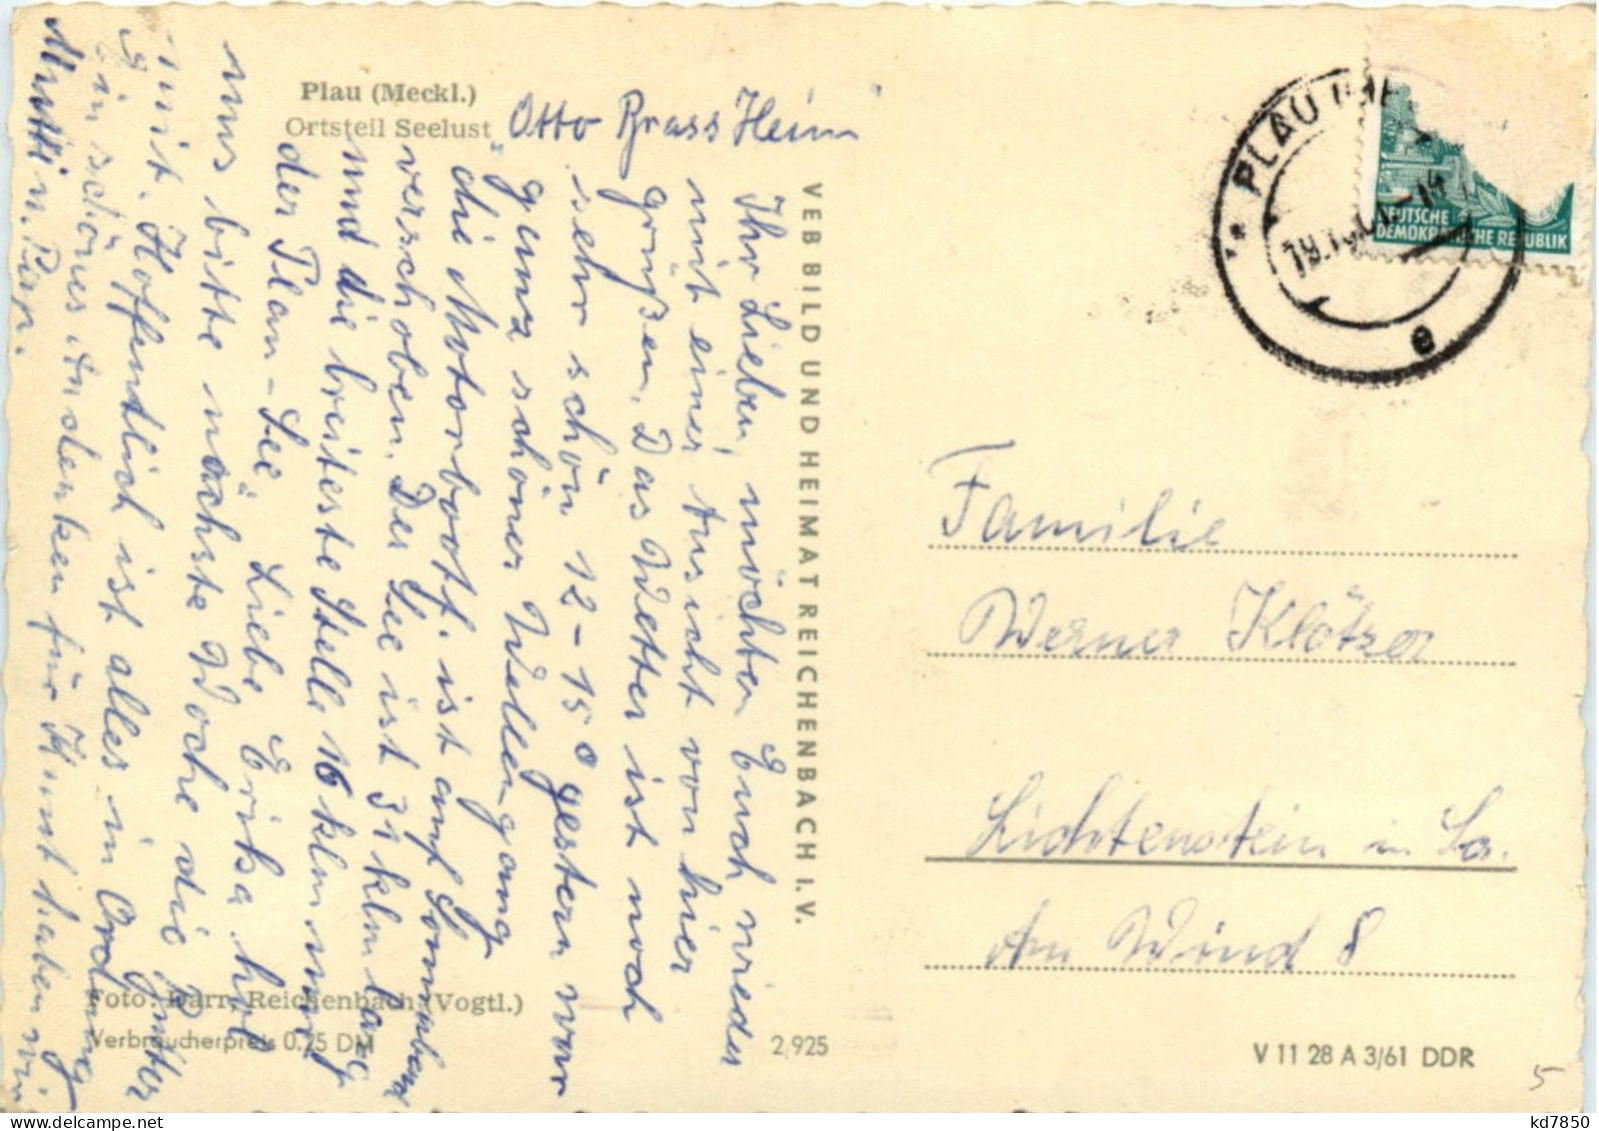 Plau (Meckl.)
Ortsteil Seelust
"Otto Brass Heim"
Ihr Lieben, möchten Euch wieder
mit einer Ansicht von hier
grüßen. Das Wetter ist noch
sehr schön 12-15° gestern war
ganz schöner Wellengang
die Motorbootf. ist auf Sonnabend
verschoben. Der See ist 31 klm lang
und die breiteste Stelle 16 klm und
der Plau-See". Liebe Erika hol
uns bitte nächste Woche die Butter
mit. Hoffentlich ist alles in Ordnung
Ein schönes Andenken für Kunt haben wir
Mutti u. Pap.
VEB BILD UND HEIMAT REICHENBACH I. V.
Foto: Darr, Reichenbach (Vogtl.)
Verbraucherpreis 0,25 DM
2/925
PLAU
19.
-14
e
DEUTSCHE
DEMOKRATISCHE REPUBLIK
Familie
Werner Klötzer
Lichtenstein in Sa.
Am Wind 8
V 11 28 A 3/61 DDR
5
kd7850